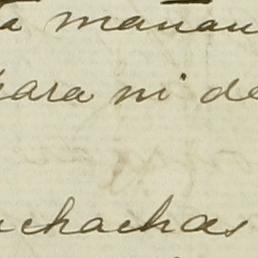 a mañan
para ni de
uchachas